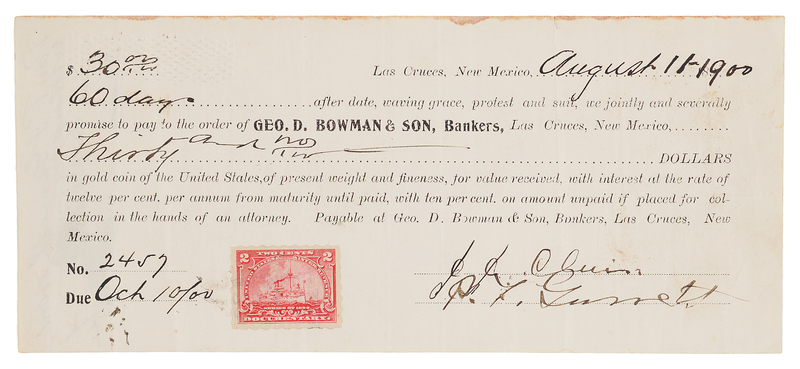 $ 30 00/100 Las Cruces, New Mexico, August 11-1900
60 days after date, waving grace, protest and suit, we jointly and severally
promise to pay to the order of GEO. D. BOWMAN & SON, Bankers, Las Cruces, New Mexico,
Thirty and no/100 DOLLARS
in gold coin of the United States, of present weight and fineness, for value received, with interest at the rate of
twelve per cent. per annum from maturity until paid, with ten per cent. on amount unpaid if placed for col-
lection in the hands of an attorney. Payable at Geo. D. Bowman & Son, Bankers, Las Cruces, New
Mexico.
No. 2457
Due Oct 10/00
2 TWO CENTS 2
DOCUMENTARY.
P. F. Garrett